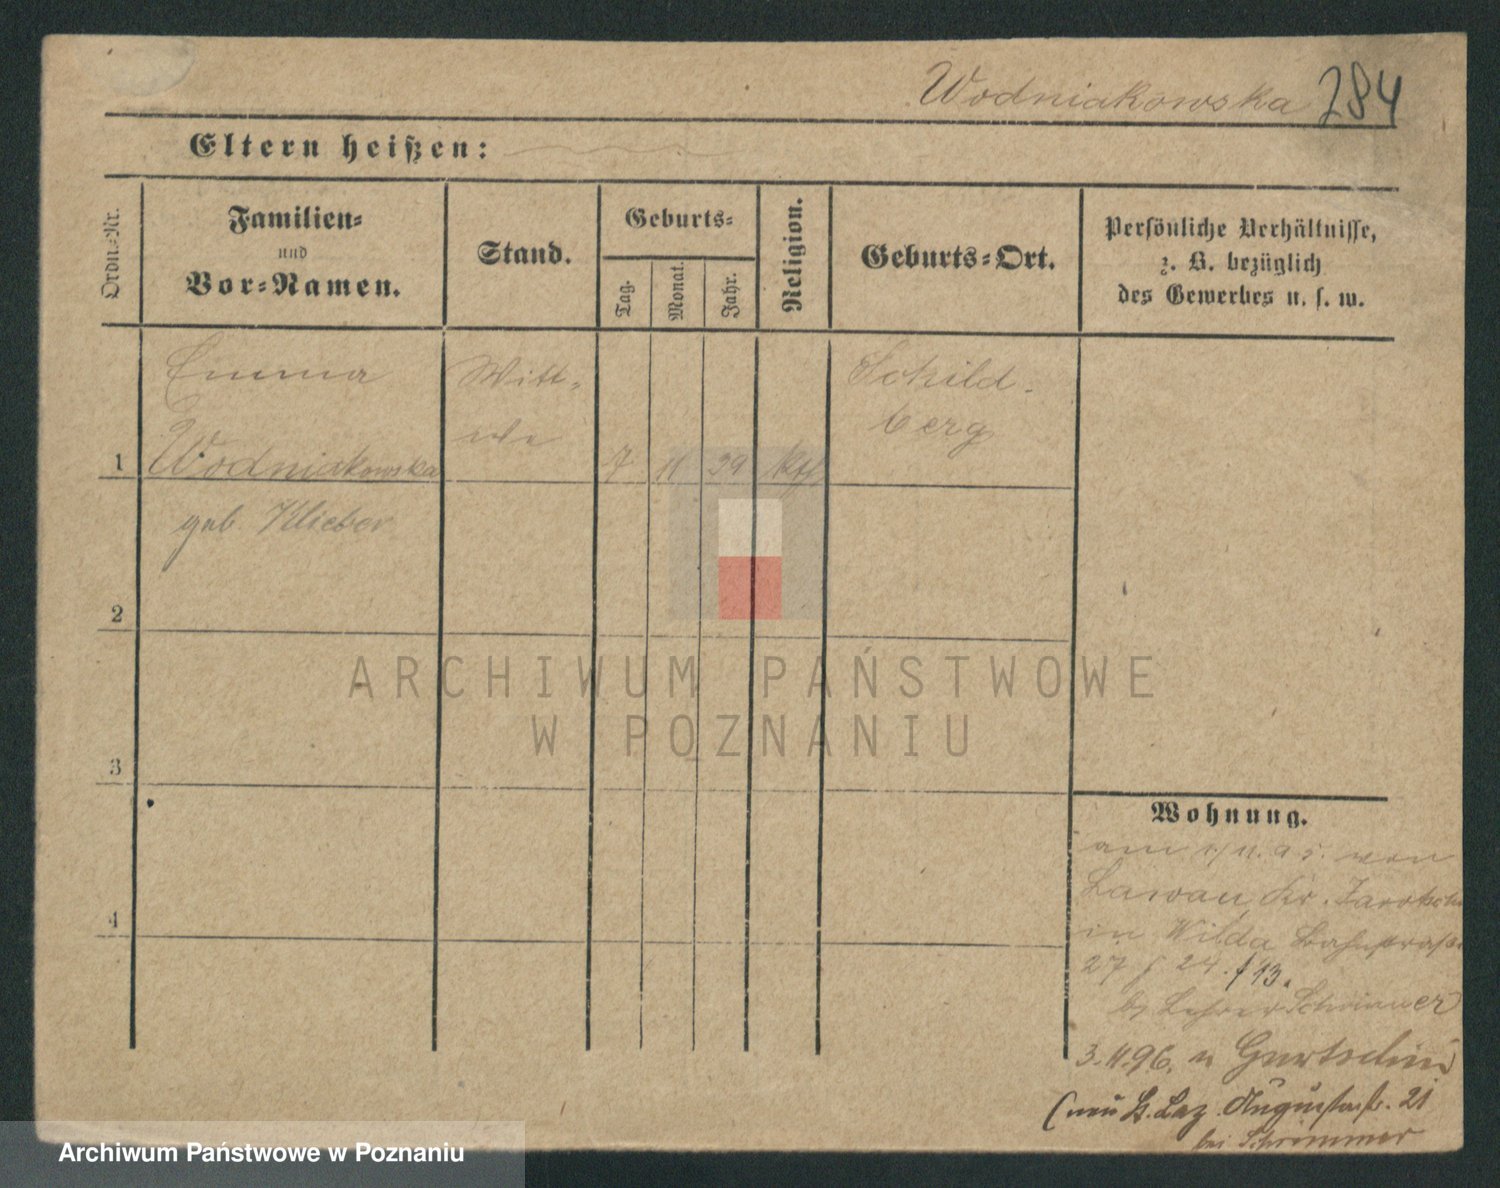 Wodniakowska 284
Eltern heißen:
Ordn.-Nr.
Familien-
und
Vor-Namen.
Stand.
Geburts-
Tag.
Monat.
Jahr.
Religion.
Geburts-Ort.
Persönliche Verhältnisse,
z. B. bezüglich
des Gewerbes u. s. w.
1
Emma
Wodniakowska
geb. Klieber
Witt-
we
7 11 29 Kth
Schild-
berg
2
3
4
Wohnung.
am 1/11. 95. von
Lawau, Kr. Jarotschin
in Wilda Bahnstraße
27 24. 13.
b. Lehrer
3.11.96. n
(neu St. Laz. Augustastr. 21
bei Schrimmer
ARCHIWUM PAŃSTWOWE
W POZNANIU
Archiwum Państwowe w Poznaniu